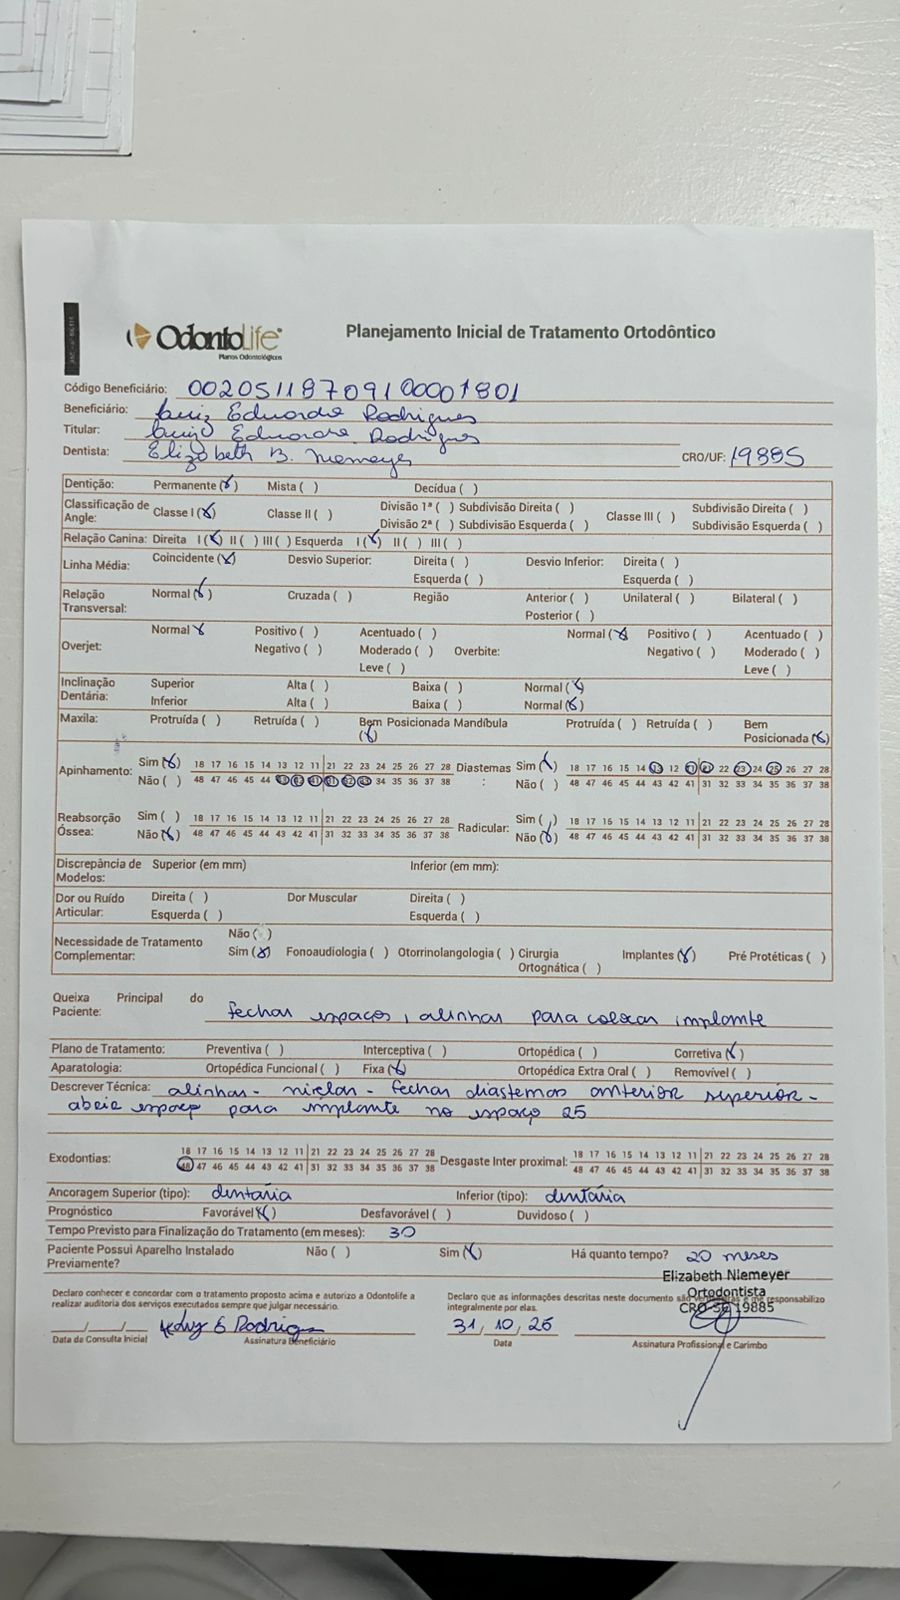 OdontoLife
Planos Odontológicos
Planejamento Inicial de Tratamento Ortodôntico
Código Beneficiário: 00205118709100001801
Beneficiário: Luiz Eduardo Rodrigues
Titular: Luiz Eduardo Rodrigues
Dentista: Elizabeth B. Niemeyer CRO/UF: 19885
Dentição: Permanente (x) Mista ( ) Decídua ( )
Classificação de Angle: Classe I (x) Classe II ( ) Divisão 1ª ( ) Subdivisão Direita ( ) Classe III ( ) Subdivisão Direita ( )
Divisão 2ª ( ) Subdivisão Esquerda ( ) Subdivisão Esquerda ( )
Relação Canina: Direita I (x) II ( ) III ( ) Esquerda I (x) II ( ) III ( )
Linha Média: Coincidente (x) Desvio Superior: Direita ( ) Desvio Inferior: Direita ( )
Esquerda ( ) Esquerda ( )
Relação Transversal: Normal (x) Cruzada ( ) Região Anterior ( ) Unilateral ( ) Bilateral ( )
Posterior ( )
Overjet: Normal x Positivo ( ) Acentuado ( ) Overbite: Normal (x) Positivo ( ) Acentuado ( )
Negativo ( ) Moderado ( ) Negativo ( ) Moderado ( )
Leve ( ) Leve ( )
Inclinação Dentária: Superior Alta ( ) Baixa ( ) Normal (x)
Inferior Alta ( ) Baixa ( ) Normal (x)
Maxila: Protruída ( ) Retruída ( ) Bem Posicionada (x) Mandíbula Protruída ( ) Retruída ( ) Bem Posicionada (x)
Apinhamento: Sim (x) 18 17 16 15 14 13 12 11 21 22 23 24 25 26 27 28 Diastemas : Sim (x) 18 17 16 15 14 13 12 11 21 22 23 24 25 26 27 28
Não ( ) 48 47 46 45 44 43 42 41 31 32 33 34 35 36 37 38 Não ( ) 48 47 46 45 44 43 42 41 31 32 33 34 35 36 37 38
Reabsorção Óssea: Sim ( ) 18 17 16 15 14 13 12 11 21 22 23 24 25 26 27 28 Radicular: Sim ( ) 18 17 16 15 14 13 12 11 21 22 23 24 25 26 27 28
Não (x) 48 47 46 45 44 43 42 41 31 32 33 34 35 36 37 38 Não (x) 48 47 46 45 44 43 42 41 31 32 33 34 35 36 37 38
Discrepância de Modelos: Superior (em mm) Inferior (em mm):
Dor ou Ruído Articular: Direita ( ) Dor Muscular Direita ( )
Esquerda ( ) Esquerda ( )
Necessidade de Tratamento Complementar: Não ( )
Sim (x) Fonoaudiologia ( ) Otorrinolangologia ( ) Cirurgia Ortognática ( ) Implantes (x) Pré Protéticas ( )
Queixa Principal do Paciente: fechar espaços, alinhar para colocar implante
Plano de Tratamento: Preventiva ( ) Interceptiva ( ) Ortopédica ( ) Corretiva (x)
Aparatologia: Ortopédica Funcional ( ) Fixa (x) Ortopédica Extra Oral ( ) Removível ( )
Descrever Técnica: alinhar - nivelar - fechar diastemas anterior superior -
abrir espaço para implante no espaço 25
Exodontias: 18 17 16 15 14 13 12 11 21 22 23 24 25 26 27 28 Desgaste Inter proximal: 18 17 16 15 14 13 12 11 21 22 23 24 25 26 27 28
48 47 46 45 44 43 42 41 31 32 33 34 35 36 37 38 48 47 46 45 44 43 42 41 31 32 33 34 35 36 37 38
Ancoragem Superior (tipo): dentária Inferior (tipo): dentária
Prognóstico Favorável (x) Desfavorável ( ) Duvidoso ( )
Tempo Previsto para Finalização do Tratamento (em meses): 30
Paciente Possui Aparelho Instalado Previamente? Não ( ) Sim (x) Há quanto tempo? 20 meses
Elizabeth Niemeyer
Ortodontista
CRO-SC 19885
Declaro conhecer e concordar com o tratamento proposto acima e autorizo a Odontolife a
realizar auditoria dos serviços executados sempre que julgar necessário.
Declaro que as informações descritas neste documento são verdadeiras e me responsabilizo
integralmente por elas.
__/__/__ Rodrigues 31, 10, 25
Data da Consulta Inicial Assinatura Beneficiário Data Assinatura Profissional e Carimbo